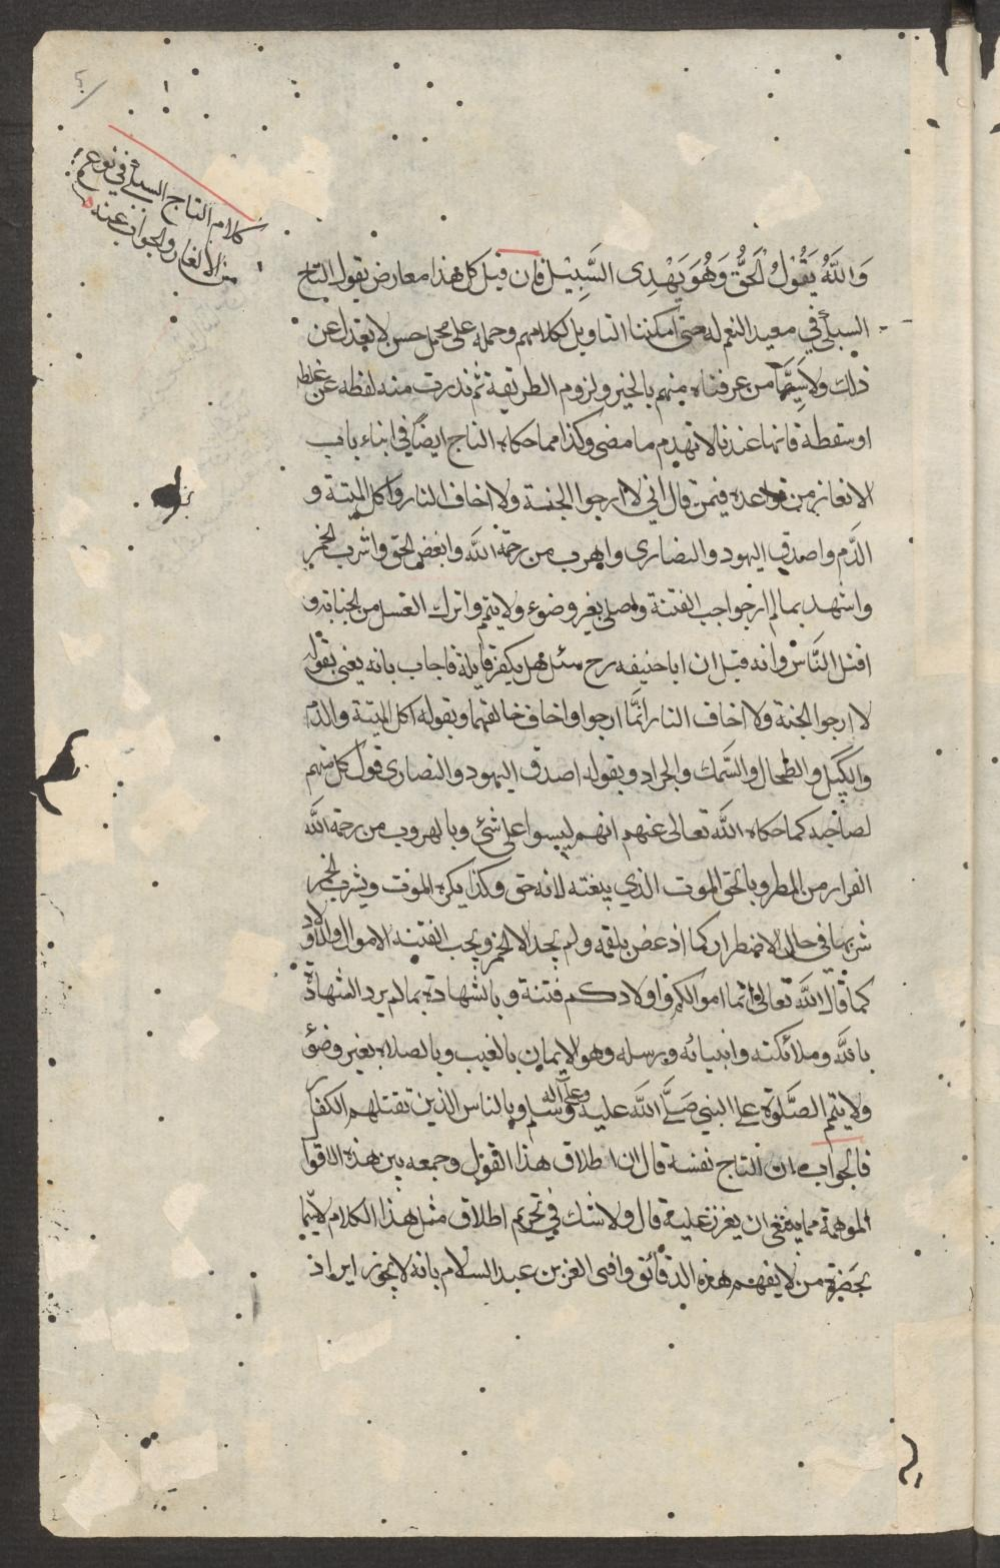 كلام التاج السبكي في نوع
من الالغاز والجواب عنه
والله يقول الحق وهو يهدى السبيل فان قيل كل هذا معارض بقول التاج
السبكي في معيد النعم له متى امكننا التاويل لكلامهم وحمله على محمل حسن لا يعدل عن
ذلك ولا سيما من عرفناه منهم بالخير ولزوم الطريقة ثم ندرت منه لفظة عن غلط
او سقطة فانها عندنا لا تهدم ما مضى وكذا مما حكاه التاج ايضا في اثناء باب
الالغاز من قواعده فيمن قال اني لا ارجوا الجنة ولا اخاف النار وآكل الميتة و
الدم واصدق اليهود والنصارى واهرب من رحمة الله وابغض الحق واشرب الخمر
واشهد بما لم ار واحب الفتنة واصلى بغير وضوء ولا تيمم واترك الغسل من الجنابة و
اقتل الناس وانه قيل ان ابا حنيفه رح سئل هل يكفر قايله فاجاب بانه يعنى بقوله
لا ارجوا الجنة ولا اخاف النار انما ارجوا واخاف خالقهما وبقوله اكل الميتة والدم
والكبد والطحال والسمك والجراد وبقوله اصدق اليهود والنصارى قول كل منهم
لصاحبه كما حكاه الله تعالى عنهم انهم ليسوا على شئ وبالهروب من رحمة الله
الفرار من المطر وبالحق الموت الذي يبغته لانه حق وكذا يكره الموت ويشرب الخمر
شربها في حال الاضطرار كما اذ غص بلقمه ولم يجد الا الخمر ويحب الفتنة الاموال والاولاد
كما قال الله تعالى انما اموالكم واولادكم فتنة وبالشهادة بما لم يرد الشهادة
بالله وملائكته وانبيائه ورسله وهو الايمان بالغيب وبالصلاة بغير وضؤ
ولا تيمم الصلوة على النبي صلى الله عليه وعلى اله وسلم وبالناس الذين تقتلهم الكفار
فالجواب ان التاج نفسه قال ان اطلاق هذا القول وجمعه بين هذه الاقوال
الموهمة مما ينبغي ان يعزر عليه قال ولا شك في تحريم اطلاق مثل هذا الكلام لا سيما
بحضرة من لا يفهم هذه الدقائق وافتى العز بن عبد السلام بانه لا يجوز ايراد